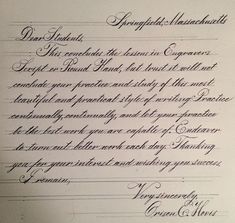 Springfield, Massachusetts
Dear Students,
This concludes the lessons in Engravers
Script or Round Hand, but trust it will not
conclude your practice and study of this most
beautiful and practical style of writing. Practice
continually, continually, and let your practice
to the best work you are capable of. Endeavor
to turn out better work each day. Thanking
you for your interest and wishing you success
I remain,
Very sincerely,